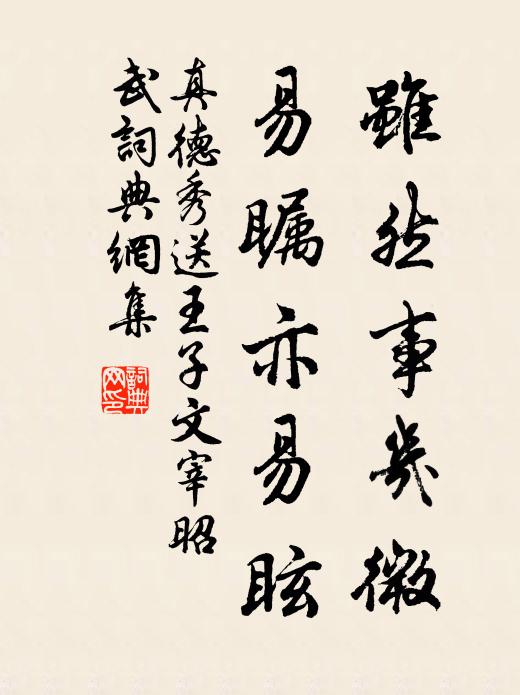 雖然事幾微
易瞩亦易眩
真德秀送王子文宰昭
武詞典網集
詞典
网印